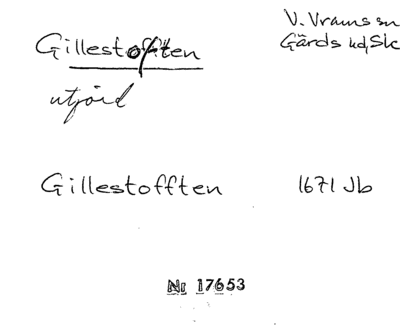 Gillestofften
V. Vrams sn
Gärds hd, Sk
utjord
Gillestofften
1671 Jb
Nr 17653